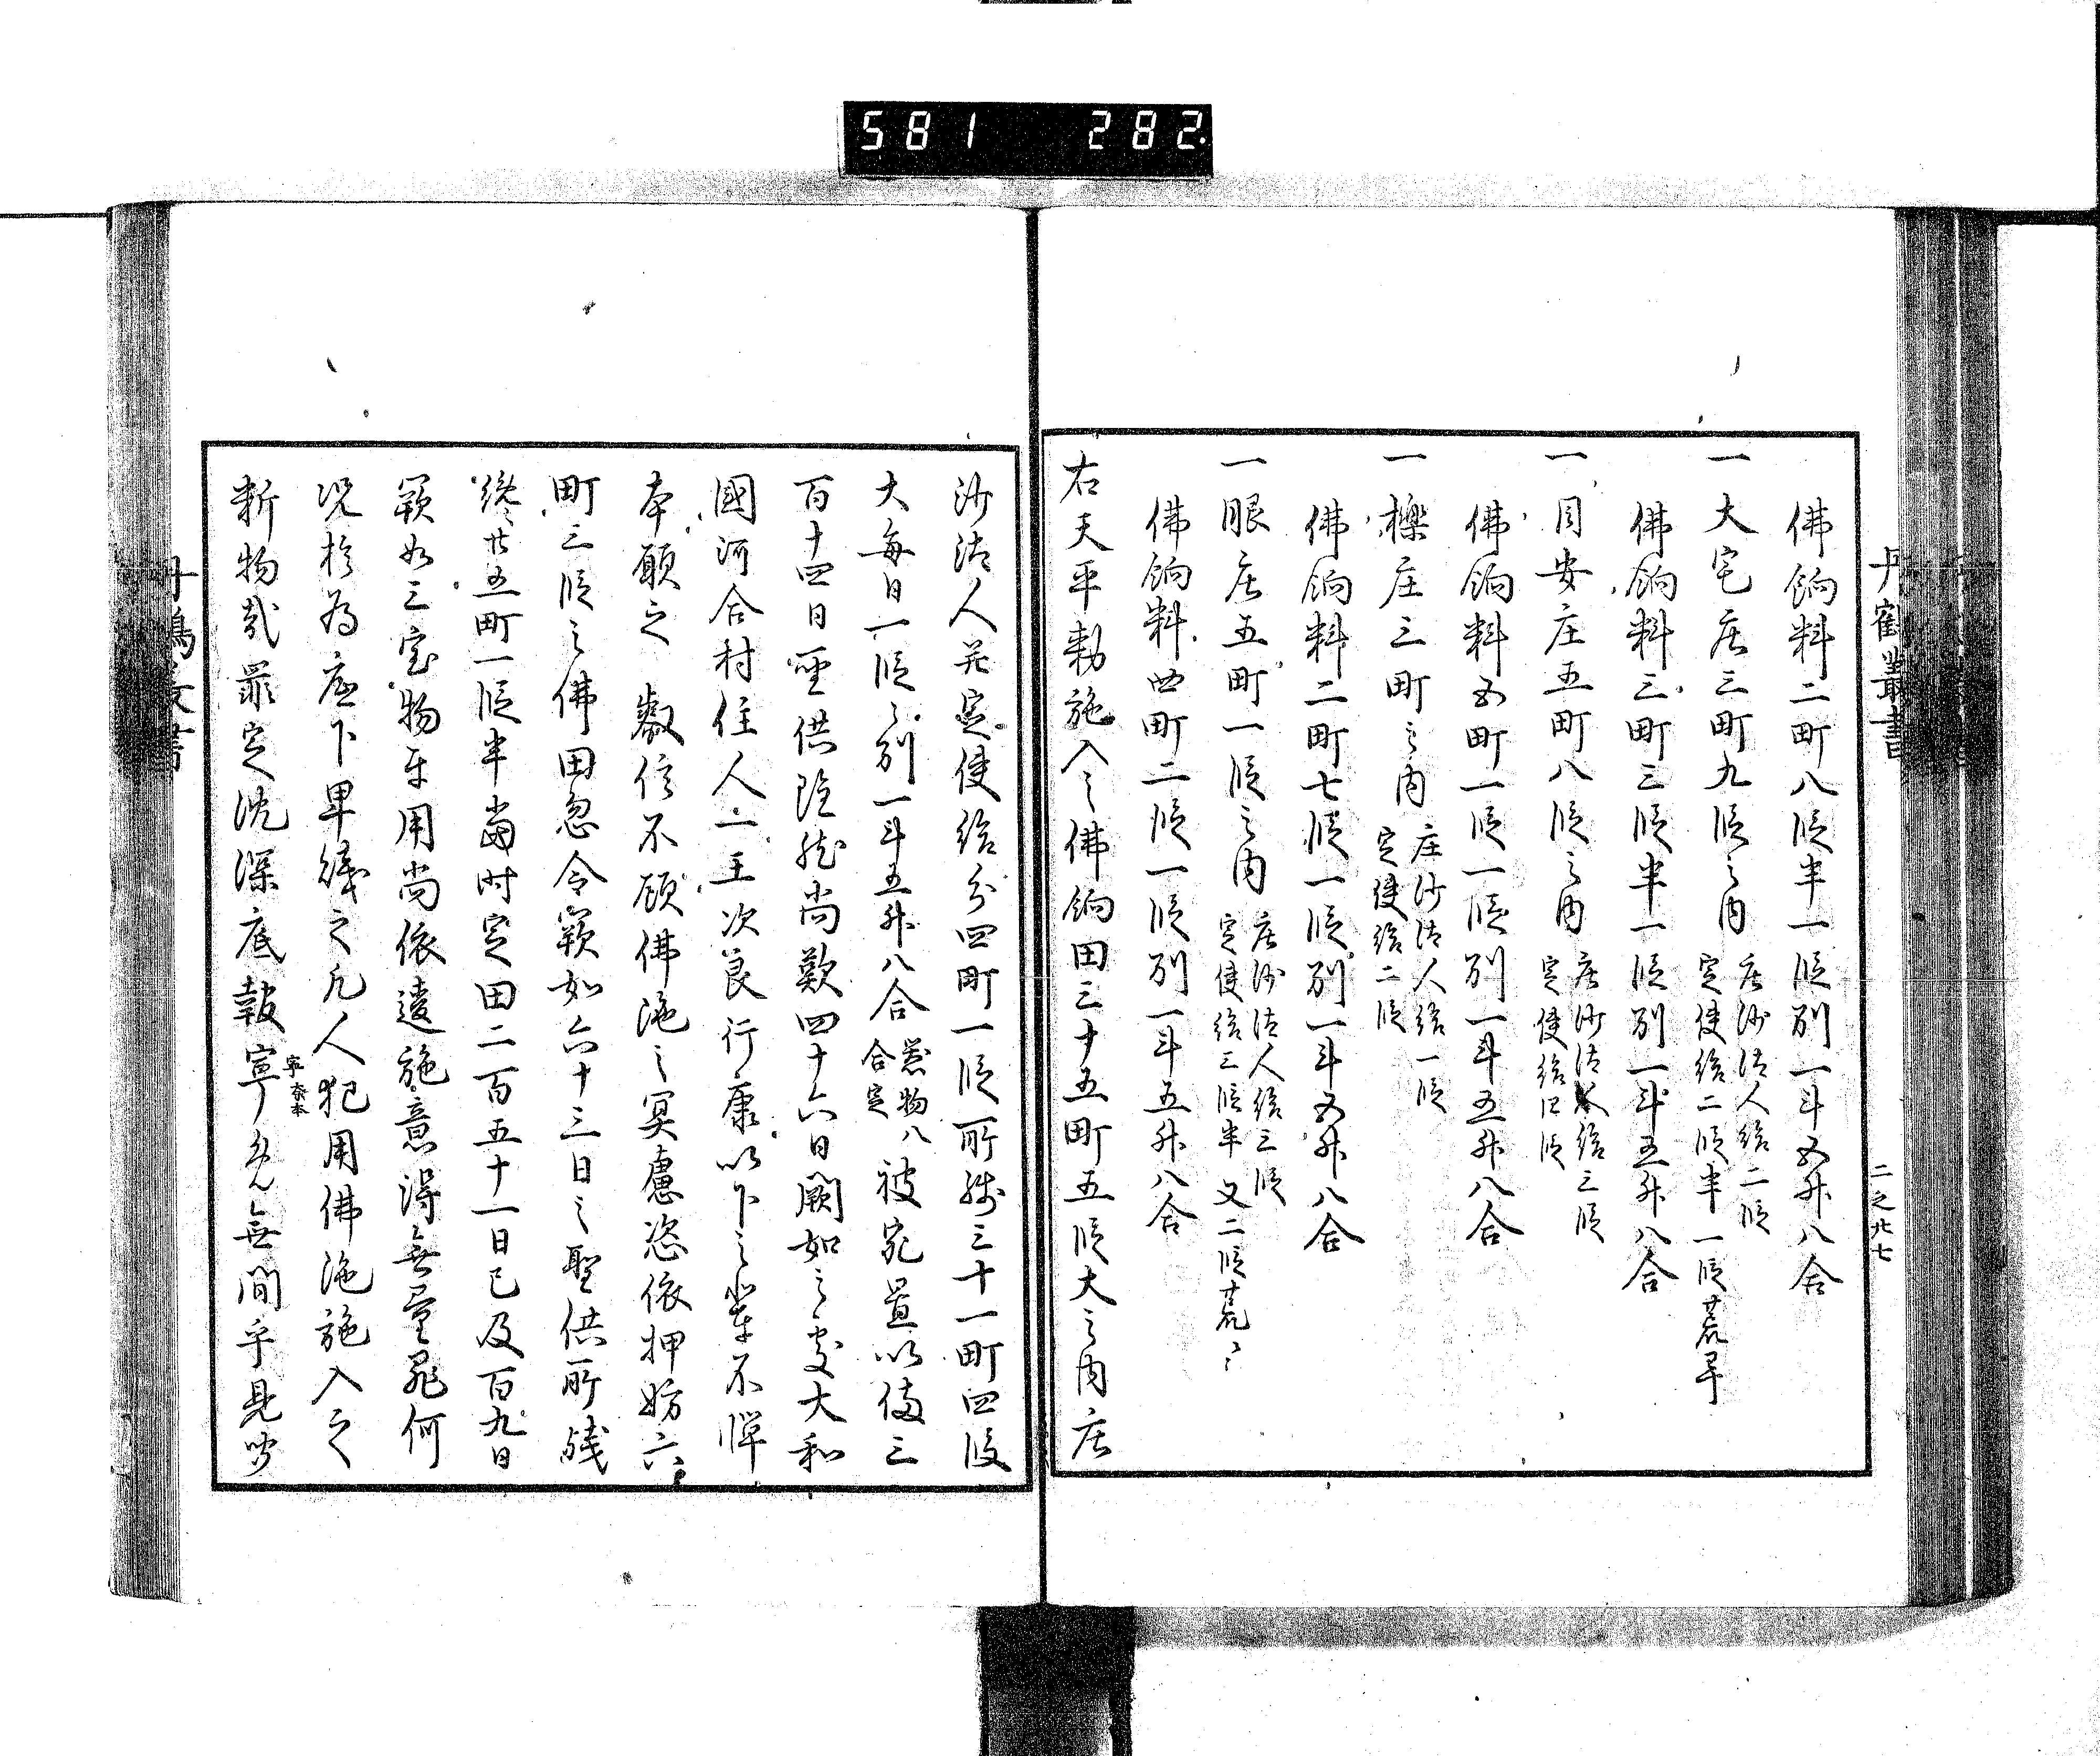 581 282
丹鶴叢書
二之廿七
佛餉料二町八段半一段別一斗五升八合
一大宅庄三町九段之内 庄沙汰人給二段 定使給二段半一段荒早
佛餉料三町三段半一段別一斗五升八合
一目安庄五町八段之内 庄沙汰人給三段 定使給
佛餉料五町一段一段別一斗五升八合
一櫟庄三町之内 庄沙汰人給一段 定使給二段
佛餉料二町七段一段別一斗五升八合
一眼庄五町一段之内 庄沙汰人給三段 定使給三段半又二段荒之
佛餉料四町二段一段別一斗五升八合
右天平勅施入之佛餉田三十五町五段大之内庄
沙汰人并定使給分四町一段所残三十一町四段
大毎日一段之別一斗五升八合 惣物八合定 被宛置以備三
百十四日聖供雖然尚歎四十六日闕如之処大和
國河合村住人一王次良行康以下之輩不憚
本願之 叡信不顧佛陁之冥慮恣依押妨六
町三段之佛田忽令闕如六十三日之聖供所残
纔廿五町一段半當時定田二百五十一日已及百九日
闕如三宝物互用尚依違施意得無量罪何
況於為庶下卑賤之凡人犯用佛陁施入之
新物哉罪定沈深底報寧 寧奈本 免無間乎是等
丹鶴叢書